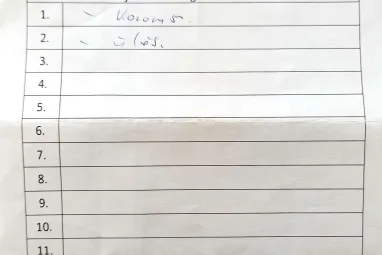 1.
2. - ülés.
3.
4.
5.
6.
7.
8.
9.
10.
11.